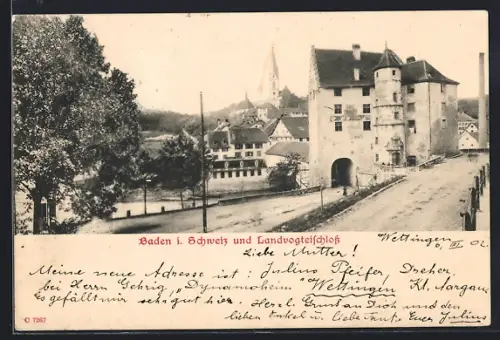 Baden i. Schweiz und Landvogteischloß
Wettingen 9. III. 02.
Liebe Mutter!
Meine neue Adresse ist: Julius Pfeifer, Dreher,
bei Herrn Gehrig, „Dynamoheim" Wettingen Kt. Aargau.
Es gefällt mir sehr gut hier. Herzl. Gruß an Dich und den
lieben Onkel u. liebe Tante Euer Julius
C 7267